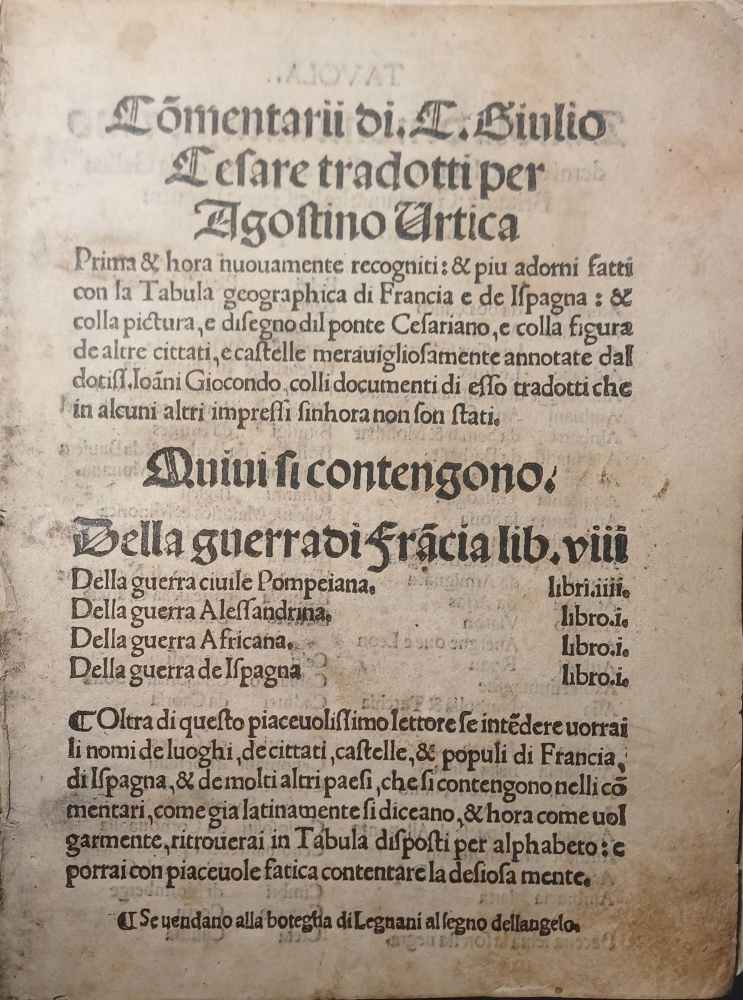 Cõmentarii di. C. Giulio
Ceſare tradotti per
Agoſtino Urtica
Prima & hora nuouamente recogniti: & piu adorni fatti
con la Tabula geographica di Francia e de Iſpagna: &
colla pictura, e diſegno dil ponte Ceſariano, e colla figura
de altre cittati, e caſtelle merauiglioſamente annotate dal
dotiſſ. Ioãni Giocondo, colli documenti di eſſo tradotti che
in alcuni altri impreſſi ſinhora non ſon ſtati.
Quiui ſi contengono.
Della guerra di Frãcia lib. viii
Della guerra ciuile Pompeiana. libri.iiii.
Della guerra Aleſſandrina. libro.i.
Della guerra Africana. libro.i.
Della guerra de Iſpagna libro.i.
¶ Oltra di queſto piaceuoliſſimo lettore ſe intẽdere uorrai
li nomi de luoghi, de cittati, caſtelle, & populi di Francia,
di Iſpagna, & de molti altri paeſi, che ſi contengono nelli cõ
mentari, come gia latinamente ſi diceano, & hora come uol
garmente, ritrouerai in Tabula diſpoſti per alphabeto: e
porrai con piaceuole fatica contentare la deſioſa mente.
¶ Se uendano alla botegha di Legnani al ſegno dellangelo.